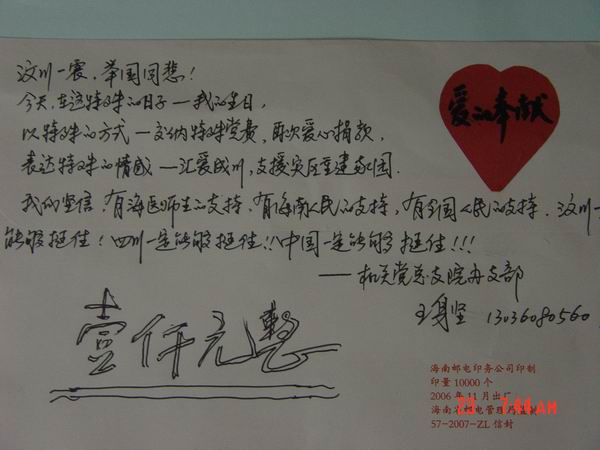 汶川一震，举国同悲！
今天，在这特殊的日子—我的生日，
以特殊的方式—交纳特殊党费，再次爱心捐款，
表达特殊的情感—汇爱成川，支援灾区重建家园．
我们坚信，有海医师生的支持，有海南人民的支持，有全国人民的支持．汶川一
能够挺住！四川一定能够挺住！！中国一定能够挺住！！！
——机关党总支院办支部
王身坚 13036080560
爱的奉献
壹仟元整
海南邮电印务公司印制
印量 10000 个
2006 年 11月出厂
海南省邮电管理局监制
57-2007-ZL 信封
23 7:44AM